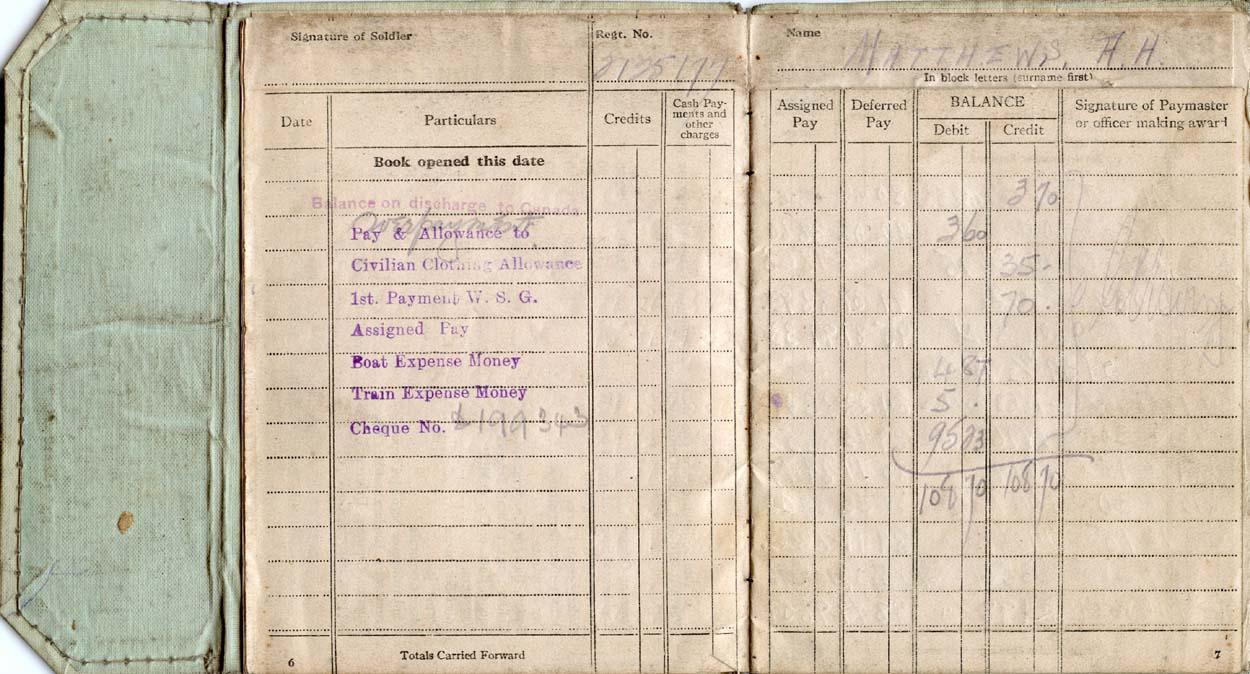 Signature of Soldier
Regt. No.
Name
2125177
MATTHEWS, A. H.
In block letters (surname first)
Date
Particulars
Credits
Cash Pay-
ments and
other
charges
Assigned
Pay
Deferred
Pay
BALANCE
Debit
Credit
Signature of Paymaster
or officer making award
Book opened this date
Balance on discharge to Canada
3 70
Overpayment
Pay & Allowance to
3 60
Civilian Clothing Allowance
35 .
1st. Payment W. S. G.
70 .
Assigned Pay
Boat Expense Money
4 87
Train Expense Money
5 .
Cheque No. 199343
95 23
108 70 108 70
6
Totals Carried Forward
7